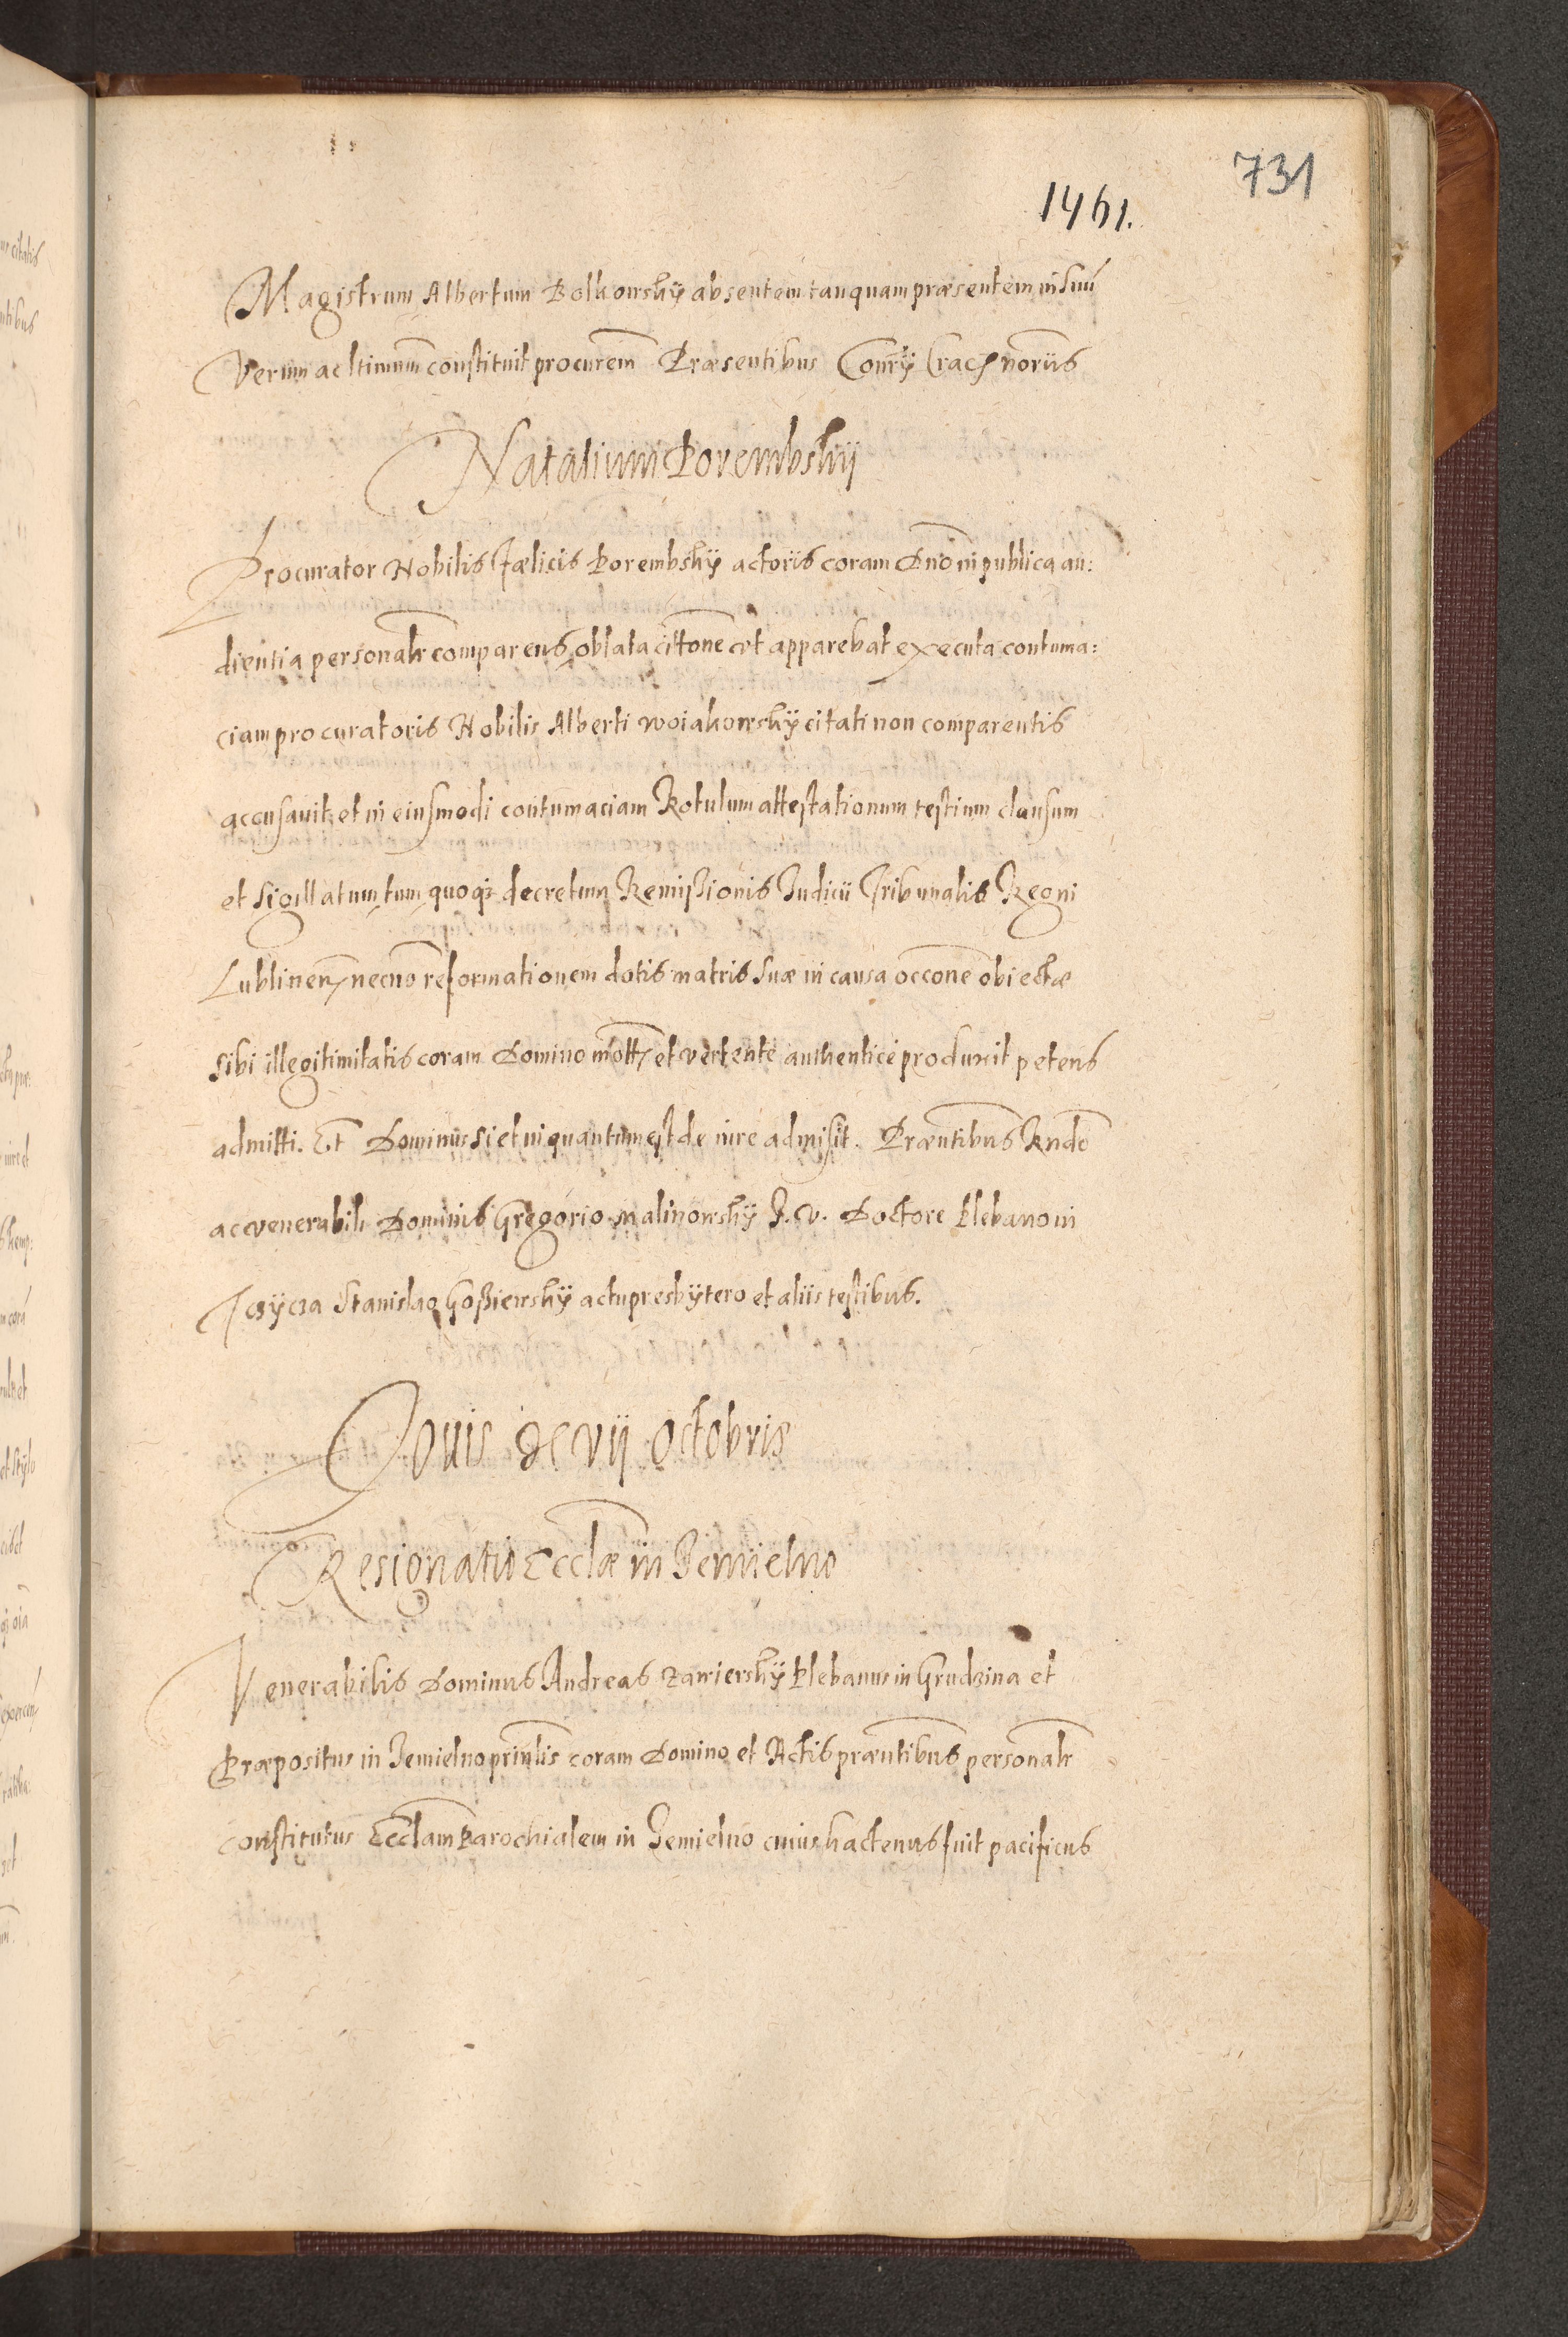 731
1461.
Magistrum Albertum Bolkowsky absentem tanquam præsentem in suū
Verum ac ltimum̄ constituit procurem̄ Præsentibus Cons̄ry Crac; noriis̄
Natalium Porembsky
Procurator Nobilis Fælicis Porembsky actoris coram Dn̄o in publica au:
dientia personalr̄ comparens, oblata cittōne ut apparebat executa contuma:
ciam procuratoris Nobilis Alberti Woiakowsky citati non comparentis
accusavit, et in eiusmodi contumaciam Rotulum attestationum testium clausum
et sigillatum, tum quoq; decretum Remissionis Iudicii Tribunalis Regni
Lublinen; necno reformationem dotis matris suæ in causa occōne obiectæ
sibi illegitimitatis coram Domino mott; et vertente authentice produxit petens
admitti. Et Dominus si et in quantum est de iure admisit. Præn̄tibus Rndō
ac venerabili Dominis Gregorio Malinowsky I. V. Doctore Plebano in
Tczycza Stanislao Goßiewsky actu presbytero et aliis testibus.
Iovis xvii Octobris
Resignatio Eccl̄æ in Jemielno
Venerabilis Dominus Andreas Zawiersky Plebanus in Grudzina et
Præpositus in Jemielno prin̄lis coram Domino et Actis præn̄tibus personalr̄
constitutus Eccl̄am Parochialem in Jemielno cuius hactenus fuit pacificus